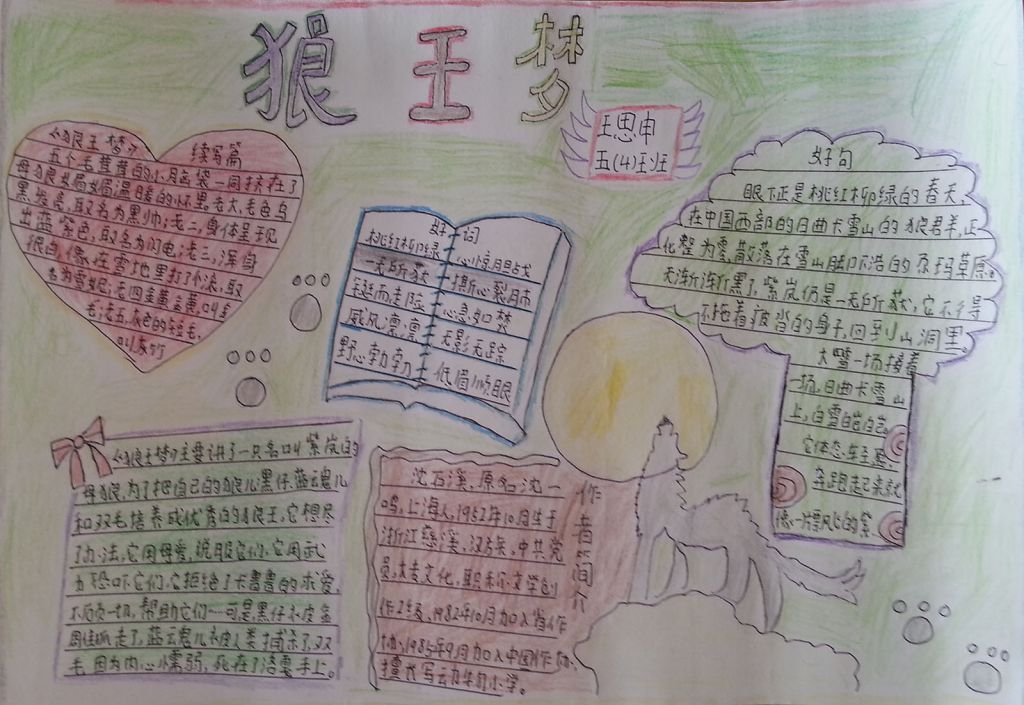 狼王梦
王思申
五(4)班
《狼王梦》 续写篇
五个毛茸茸的小脑袋一同挤在了
母狼娟娟温暖的怀里。老大,毛色乌
黑发亮,取名为黑帅;老二,身体呈现
出蓝紫色,取名为闪电;老三,浑身
很白,像在雪地里打了个滚,取
名为雪妮;老四金黄金黄,叫金
毛;老五,灰色的短毛,
叫灰竹
好词
桃红柳绿
一无所获
铤而走险
威风凛凛
野心勃勃
心惊胆战
撕心裂肺
心急如焚
无影无踪
低眉顺眼
好句
眼下正是桃红柳绿的春天,
在中国西部的日曲卡雪山的狼群,正
化整为零,散落在雪山脚下浩的尕玛草原。
天渐渐黑了,紫岚仍是一无所获,它不得
不拖着疲惫的身子,回到山洞里。
大雪一场接着
一场,日曲卡雪山
上,白雪皑皑。
它体态轻盈,
奔跑起来就
像一片飘飞的紫
《狼王梦》主要讲了一只名叫紫岚的
母狼,为了把自己的狼儿黑仔、蓝云魂儿
和双毛培养成优秀的狼王,它想尽
了办法,它用母爱,说服它们,它用武
力恐吓它们,它拒绝了卡鲁鲁的求爱,
不顾一切,帮助它们……可是黑仔被金
雕抓走了,蓝云魂儿被人类捕杀了,双
毛,因为内心懦弱,死在了洛戛手上。
作者简介
沈石溪,原名沈一
鸣,上海人,1952年10月生于
浙江慈溪,汉族,中共党
员,大专文化,职称文学创
作2级,1982年10月加入省作
协,1985年9月加入中国作协,
擅长写动物小学。